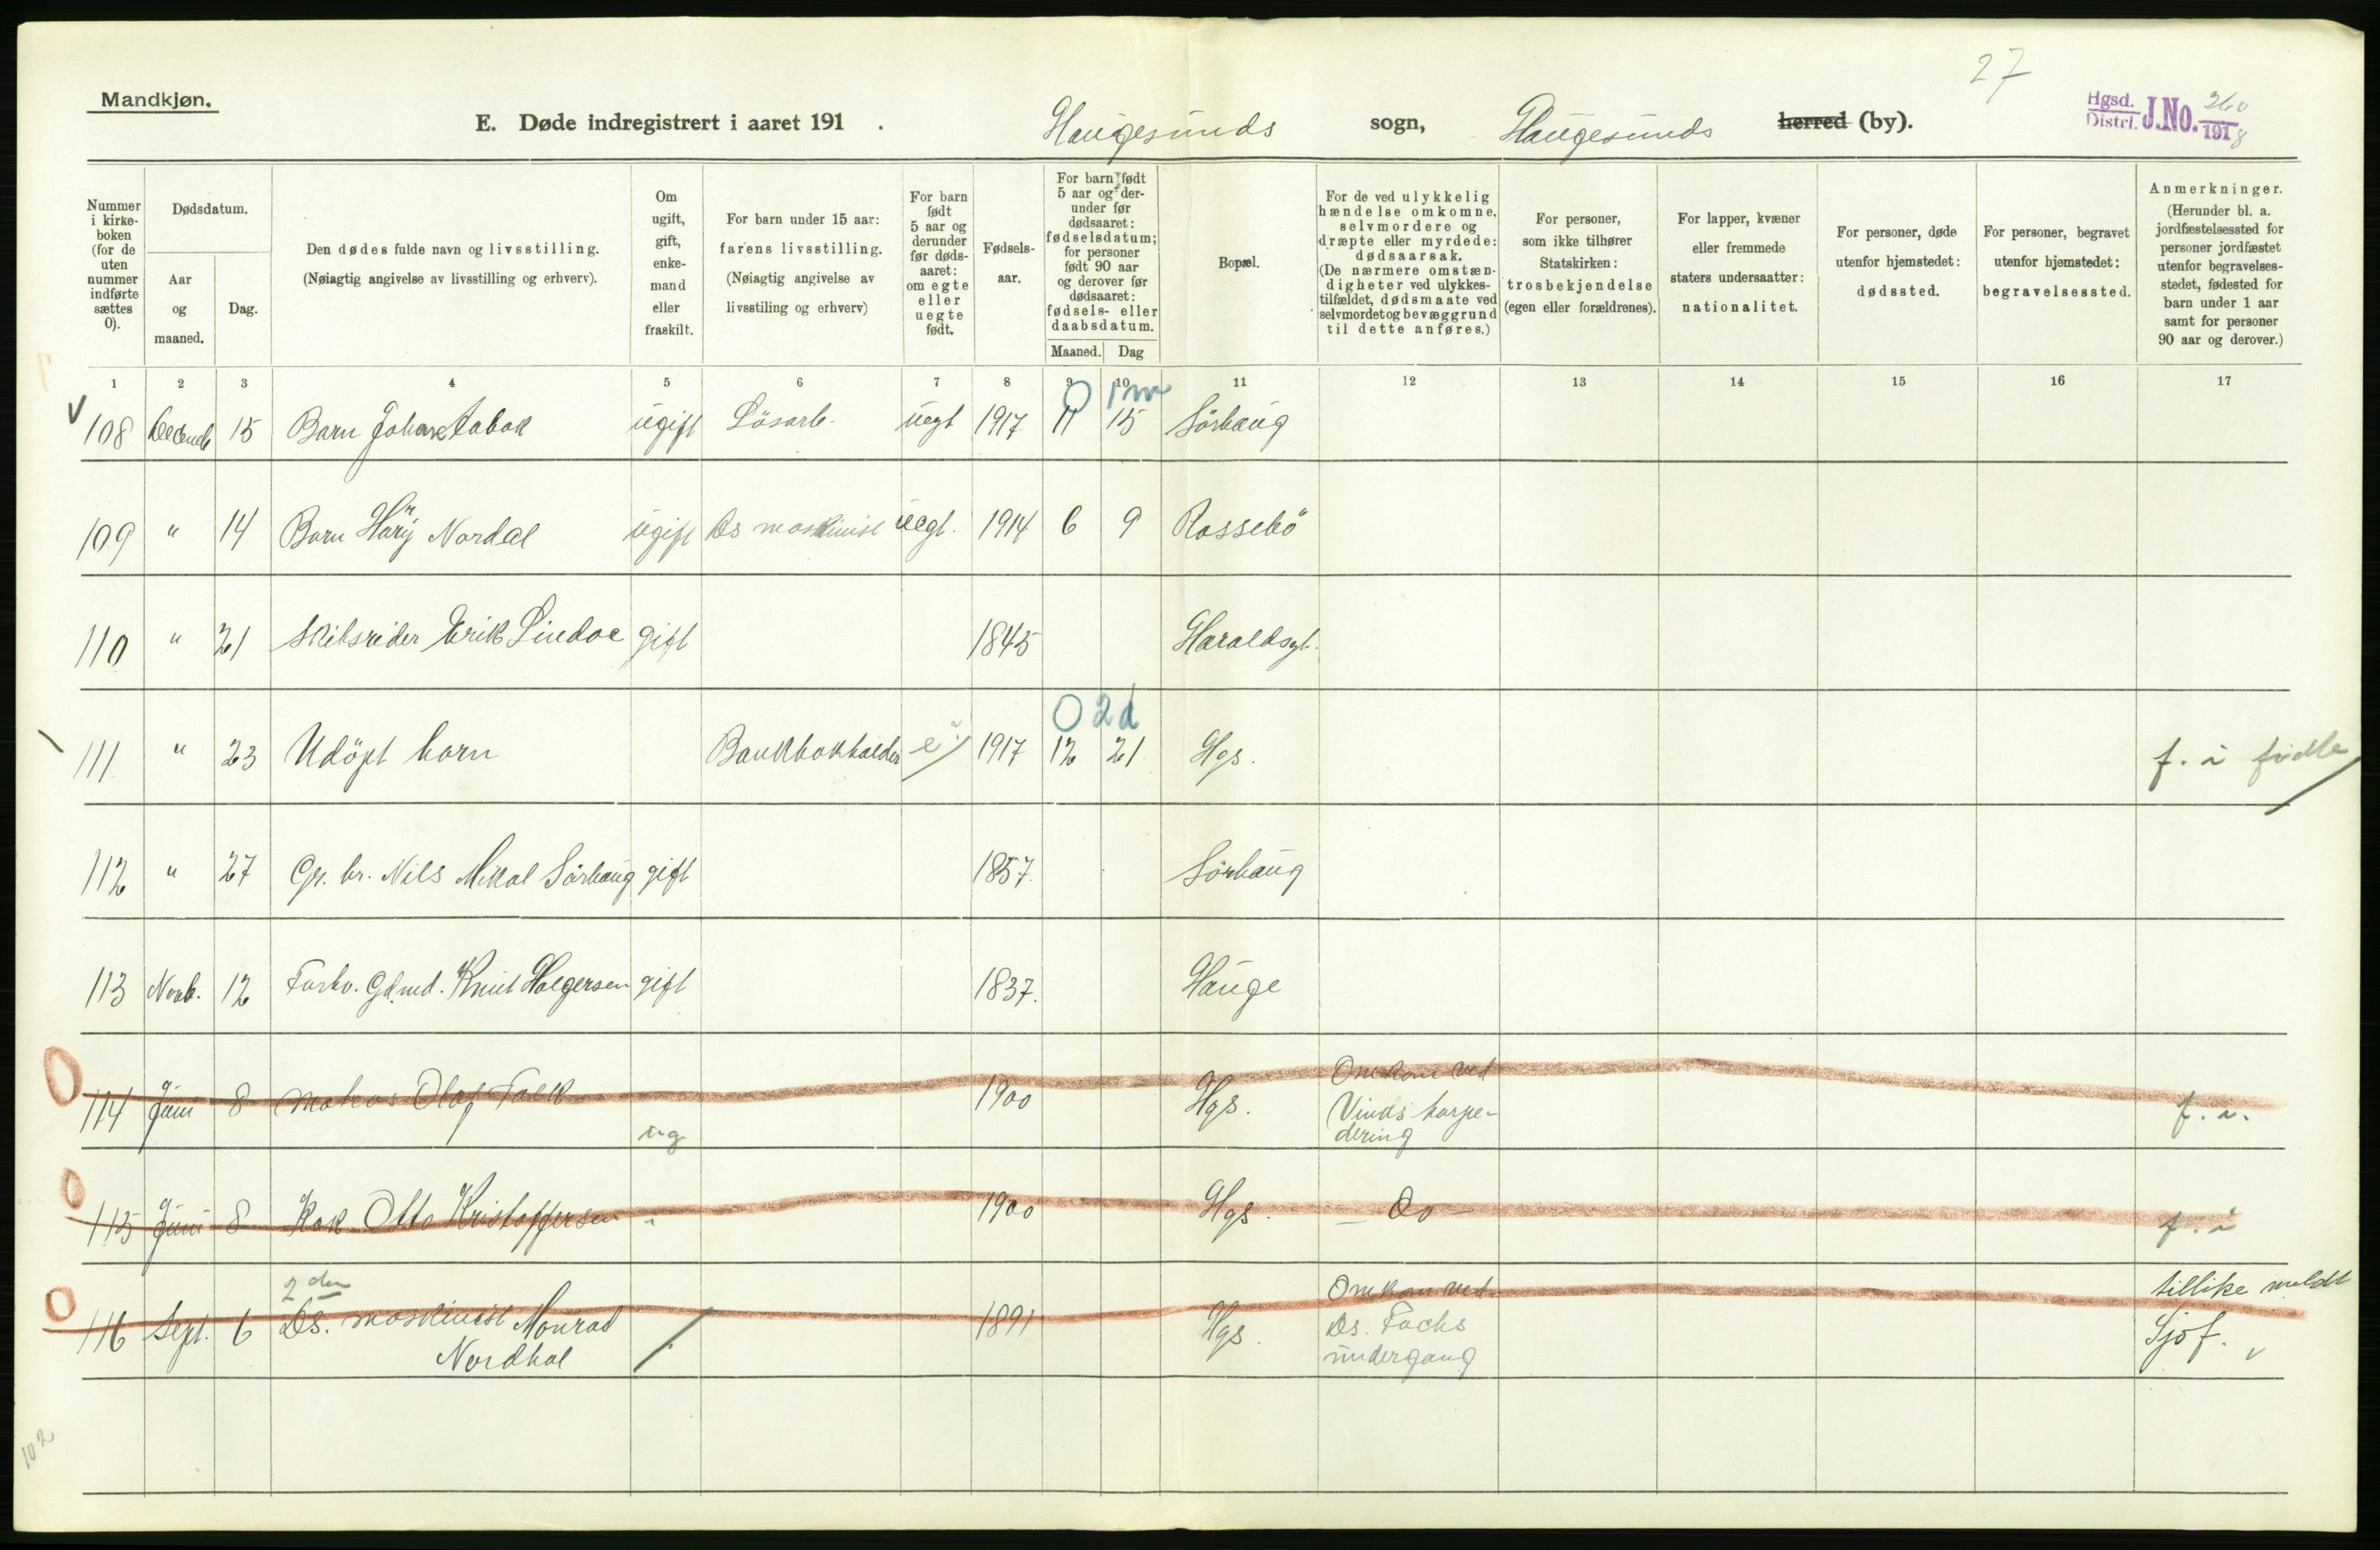 27
Mandkjøn.
E. Døde indregistrert i aaret 191 . Haugesunds sogn, Haugesunds herred (by).
Hgsd. Distr. J.No. 260 1918
Nummer i kirke-boken (for de uten nummer indførte sættes 0).
Dødsdatum.
Aar og maaned.
Dag.
Den dødes fulde navn og livsstilling.
(Nøiagtig angivelse av livsstilling og erhverv).
Om ugift, gift, enke-mand eller fraskilt.
For barn under 15 aar:
farens livsstilling.
(Nøiagtig angivelse av
livsstiling og erhverv)
For barn født 5 aar og derunder før døds-aaret: om egte eller uegte født.
Fødsels-aar.
For barn født 5 aar og der-under før dødsaaret: fødselsdatum; for personer født 90 aar og derover før dødsaaret: fødsels- eller daabsdatum.
Maaned. Dag
Bopæl.
For de ved ulykkelig hændelse omkomne, selvmordere og dræpte eller myrdede: dødsaarsak. (De nærmere omstæn-digheter ved ulykkes-tilfældet, dødsmaate ved selvmordet og bevæggrund til dette anføres.)
For personer, som ikke tilhører Statskirken: trosbekjendelse (egen eller forældrenes).
For lapper, kvæner eller fremmede staters undersaatter: nationalitet.
For personer, døde utenfor hjemstedet: dødssted.
For personer, begravet utenfor hjemstedet: begravelsessted.
Anmerkninger.
(Herunder bl. a. jordfæstelsessted for personer jordfæstet utenfor begravelses-stedet, fødested for barn under 1 aar samt for personer 90 aar og derover.)
1 2 3 4 5 6 7 8 9 10 11 12 13 14 15 16 17
0 1m
108 Decemb 15 Barn Johan Aabak ugift Lösarb. uegt 1917 11 15 Sörhaug
109 " 14 Barn Harry Nordal ugift Ds maskinist uegt. 1914 6 9 Rossebö
110 " 21 Skibsreder Erik Lindoe gift 1845 Haraldsgt.
0 2d
111 " 23 Udöpt barn Bankbokholder e 1917 12 21 Hgs. f. i
112 " 27 Gr. br. Nils Mikal Sörhaug gift 1857 Sörhaug
113 Novb. 12 Forhv. Gd.md. Knut Holgersen gift 1837. Hauge
114 Juni 8 Matros Olaf Falk ug 1900 Hgs. Omkom ved
Vinds torpe-
dering f. i.
115 Juni 8 Kok Otto Kristoffersen " 1900 Hgs. - Do - f. i
116 Sept. 6 2den
Ds. maskinist Monrad
Nordhal 1891 Hgs. Omkom ved
Ds. Fachs
undergang tillike meldt
Sjöf.
102